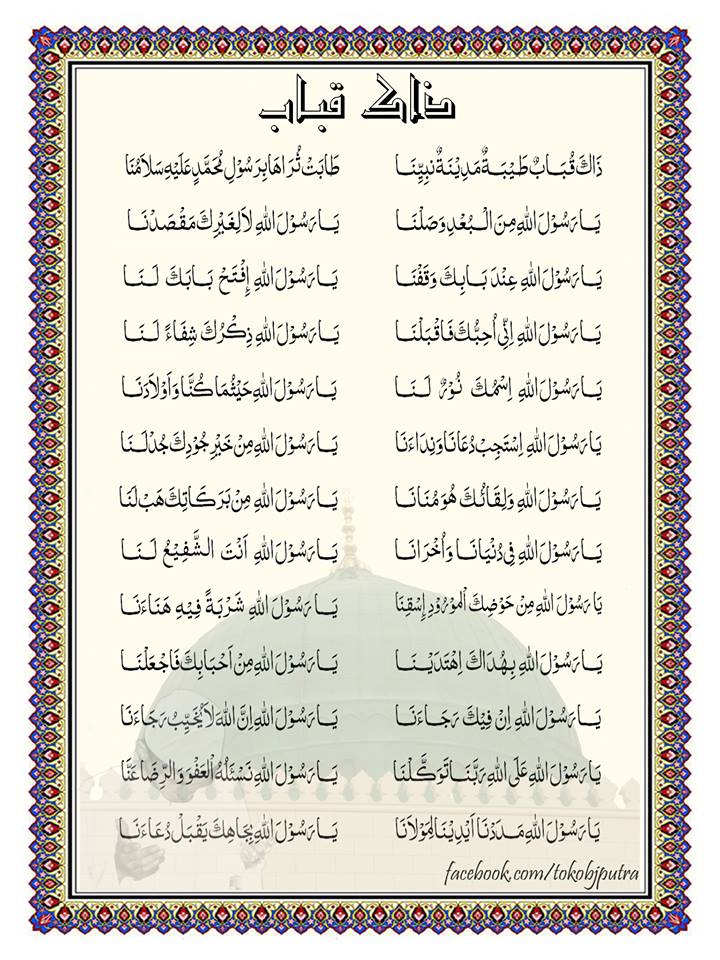 ذاك قباب
ذَاكَ قُبَابٌ طَيْبَةٌ مَدِيْنَةٌ نَبِيِّنَا طَابَتْ ثُرَاهَا بِرَسُوْلِ مُحَمَّدٍ عَلَيْهِ سَلَامُنَا
يَا رَسُوْلَ اللهِ مِنَ الْبُعْدِ وَصَلْنَا يَا رَسُوْلَ اللهِ لَا لِغَيْرِكَ مَقْصَدْنَا
يَا رَسُوْلَ اللهِ عِنْدَ بَابِكَ وَقَفْنَا يَا رَسُوْلَ اللهِ إِفْتَحْ بَابَكَ لَنَا
يَا رَسُوْلَ اللهِ اِنِّي أُحِبُّكَ فَاقْبَلْنَا يَا رَسُوْلَ اللهِ ذِكْرُكَ شِفَاءً لَنَا
يَا رَسُوْلَ اللهِ اِسْمُكَ نُوْرٌ لَنَا يَا رَسُوْلَ اللهِ حَيْثُمَا كُنَّا وَأَوْلَادَنَا
يَا رَسُوْلَ اللهِ اِسْتَجِبْ دُعَانَا وَنِدَاءَنَا يَا رَسُوْلَ اللهِ مِنْ خَيْرِ جُوْدِكَ جُدْلَنَا
يَا رَسُوْلَ اللهِ وَلِقَائُكَ هُوَ مُنَانَا يَا رَسُوْلَ اللهِ مِنْ بَرَكَاتِكَ هَبْ لَنَا
يَا رَسُوْلَ اللهِ فِي دُنْيَانَا وَأُخْرَانَا يَا رَسُوْلَ اللهِ اَنْتَ الشَّفِيْعُ لَنَا
يَا رَسُوْلَ اللهِ مِنْ حَوْضِكَ الْمَوْرُوْدِ إِسْقِنَا يَا رَسُوْلَ اللهِ شَرْبَةً فِيْهِ هَنَاءَنَا
يَا رَسُوْلَ اللهِ بِهُدَاكَ اِهْتَدَيْنَا يَا رَسُوْلَ اللهِ مِنْ اَحْبَابِكَ فَاجْعَلْنَا
يَا رَسُوْلَ اللهِ اِنْ فِيْكَ رَجَاءَنَا يَا رَسُوْلَ اللهِ اِنَّ اللهَ لَا يُخَيِّبُ رَجَاءَنَا
يَا رَسُوْلَ اللهِ عَلَى اللهِ رَبَّنَا تَوَكَّلْنَا يَا رَسُوْلَ اللهِ نَسْئَلُهُ الْعَفْوَ وَالرِّضَا عَنَّا
يَا رَسُوْلَ اللهِ مَدَدْنَا اَيْدِيْنَا لِمَوْلَانَا يَا رَسُوْلَ اللهِ بِجَاهِكَ يَقْبَلْ دُعَاءَنَا
facebook.com/tokobjputra